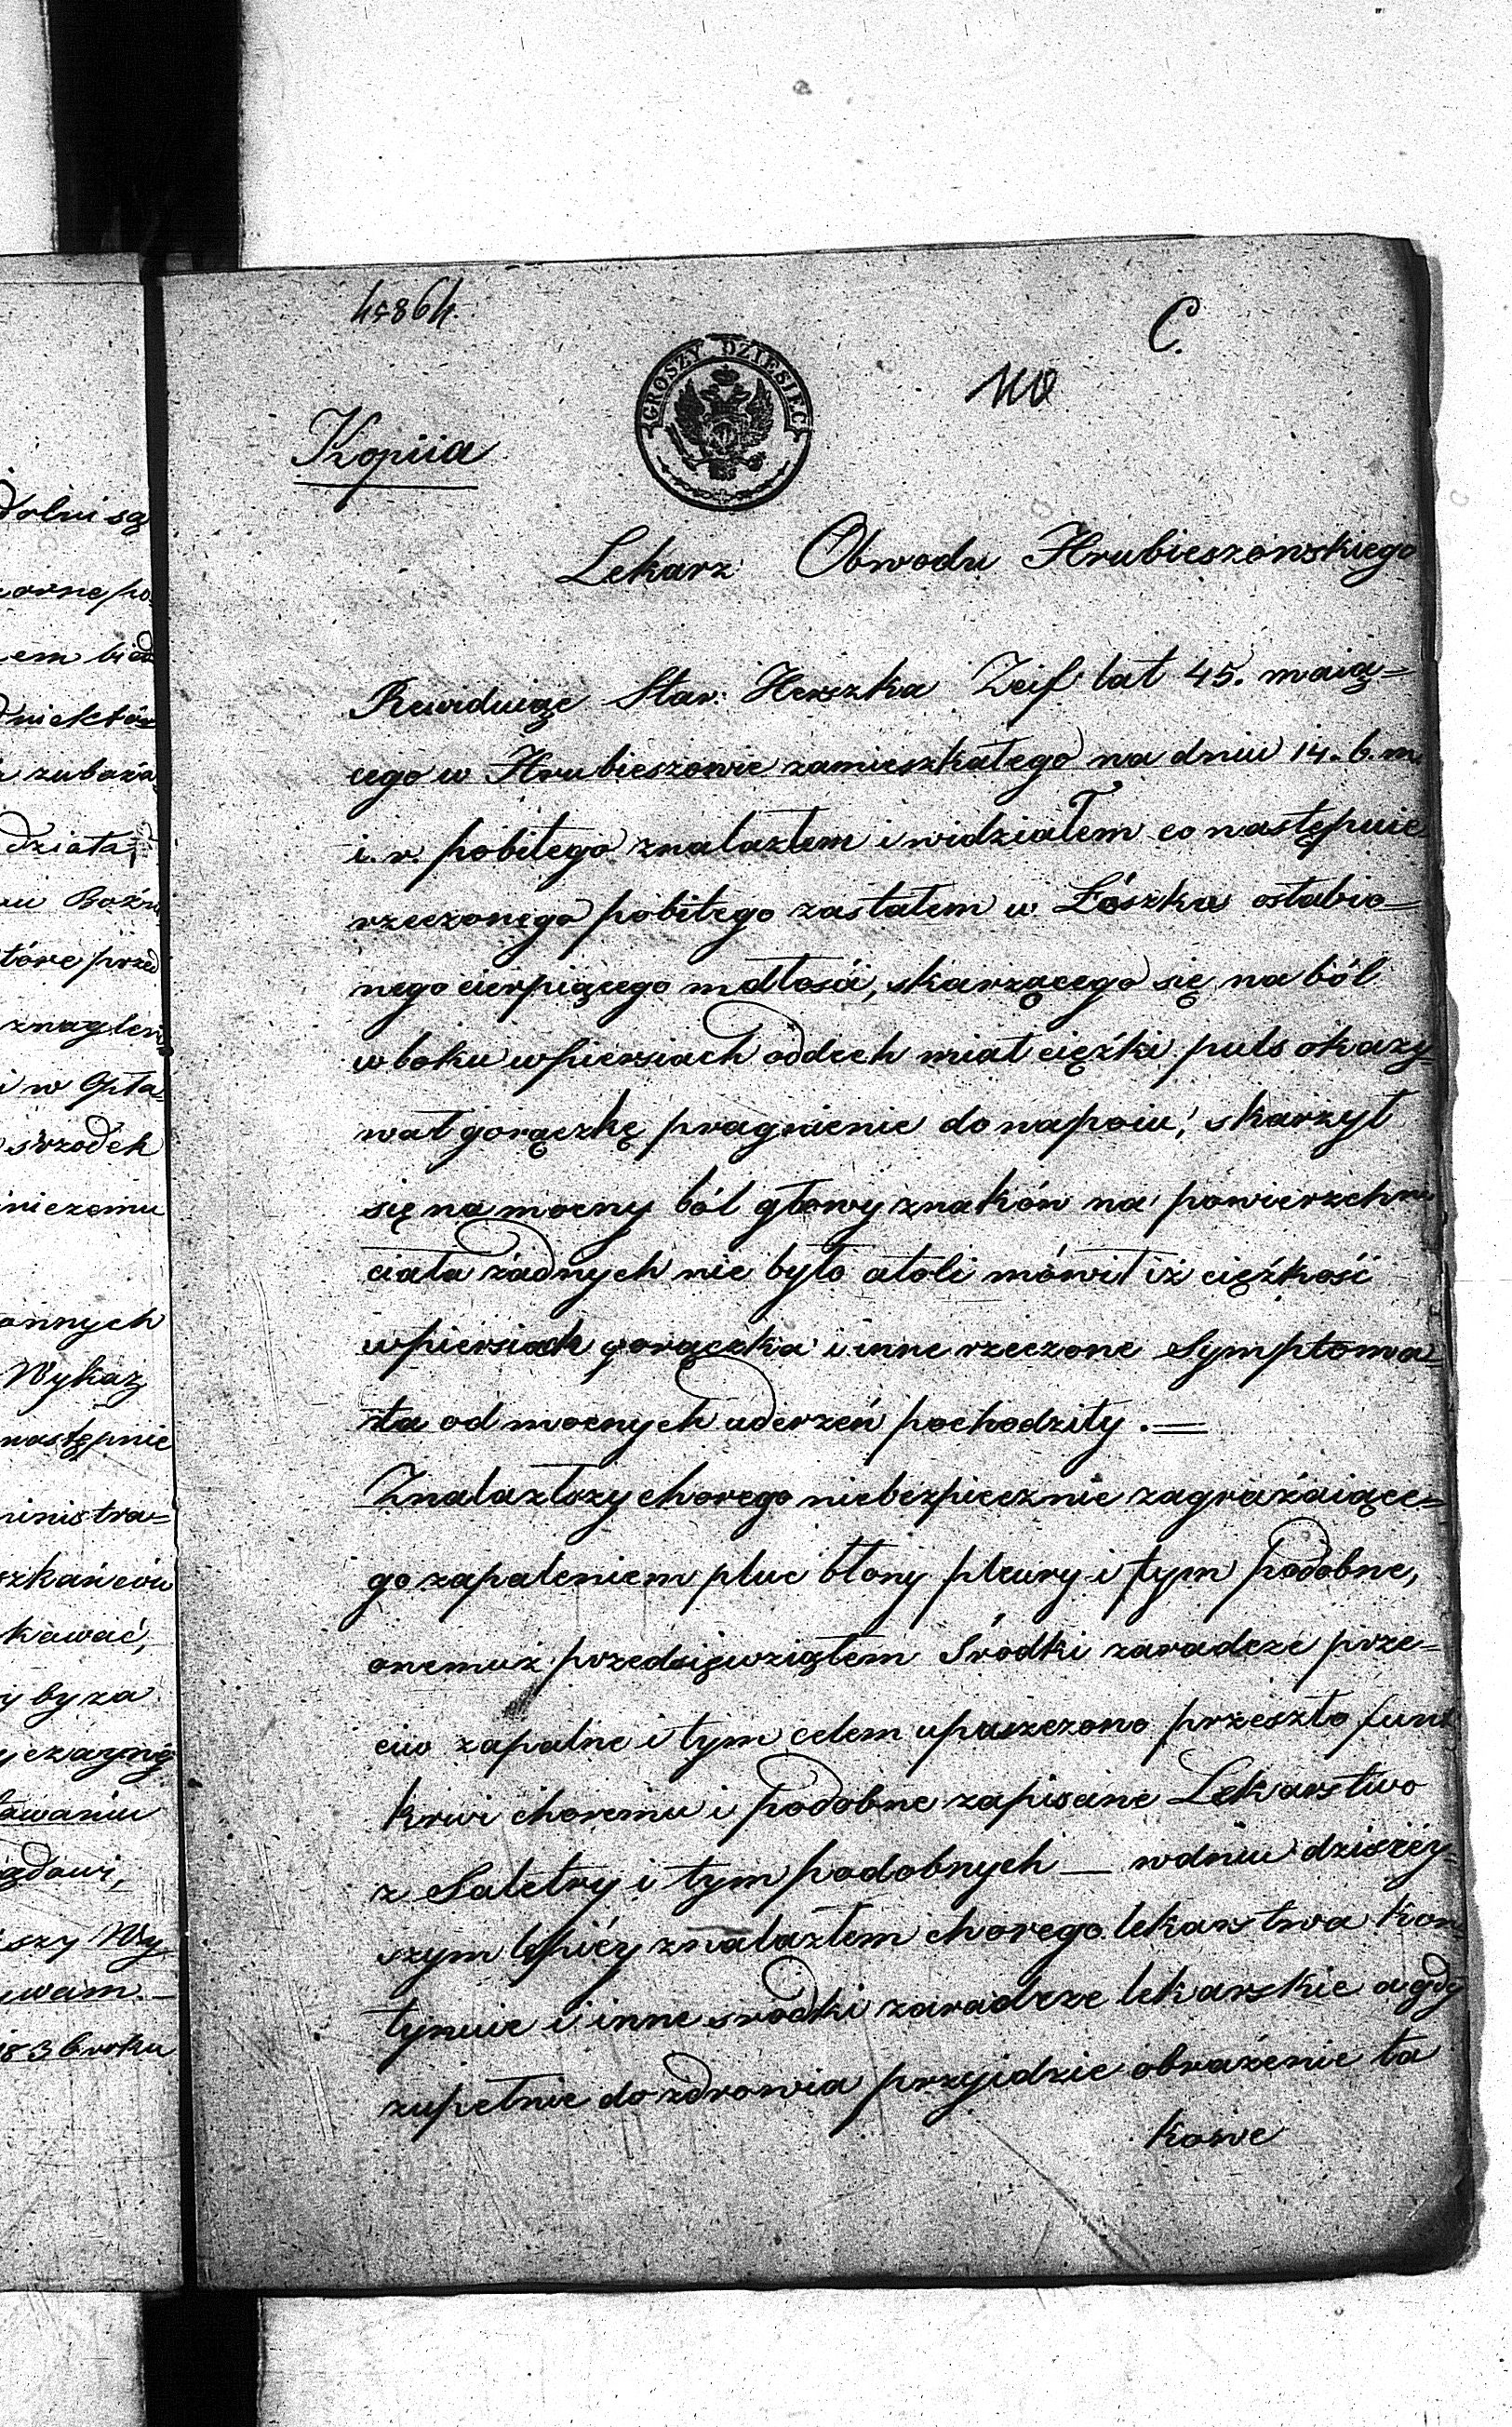 45864.
C.
110
GROSZY DZIESIĘĆ
Kopiia
Lekarz Obwodu Hrubieszowskiego
Rewiduiąc Star: Herszka Zeif lat 45. maią=
cego w Hrubieszowie zamieszkałego na dniu 14. b. m.
i. r. pobitego znalazłem i widziałem co następuie
rzeczonego pobitego zastałem w Łószku osłabio=
nego cierpiącego mdłości, skarzącego się na ból
w boku w piersiach oddech miał ciężki puls okazy=
wał gorączkę pragnienie do napoiu, skarzył
się na mocny ból głowy znaków na powierzchni
ciała żadnych nie było atoli mówił iż ciężkość
w piersiach gorączka i inne rzeczone Symptoma=
ta od mocnych uderzeń pochodziły. =
Znalazłszy chorego niebezpiecznie zagrażaiące=
go zapaleniem płuc błony pleury i tym podobne,
onemuż przedsięwziąłem Środki zaradcze prze=
ciw zapalne i tym celem upuszczono przeszło funt
krwi choremu i podobne zapisane Lekarstwo
z Saletry i tym podobnych — w dniu dzisiéy=
szym lepiéy znalazłem chorego lekarstwa kon
tynuie i inne srodki zaradcze lekarskie a gdy
zupełnie do zdrowia przyjdzie obrażenie ta
kowe
dolni są
znaglen
srzodek
niczemu
onnych
Wykaz
następnie
ministra=
szkańców
kawać,
y by za
tawaniu
ądowi,
szy Wy
wam. —
1836 roku